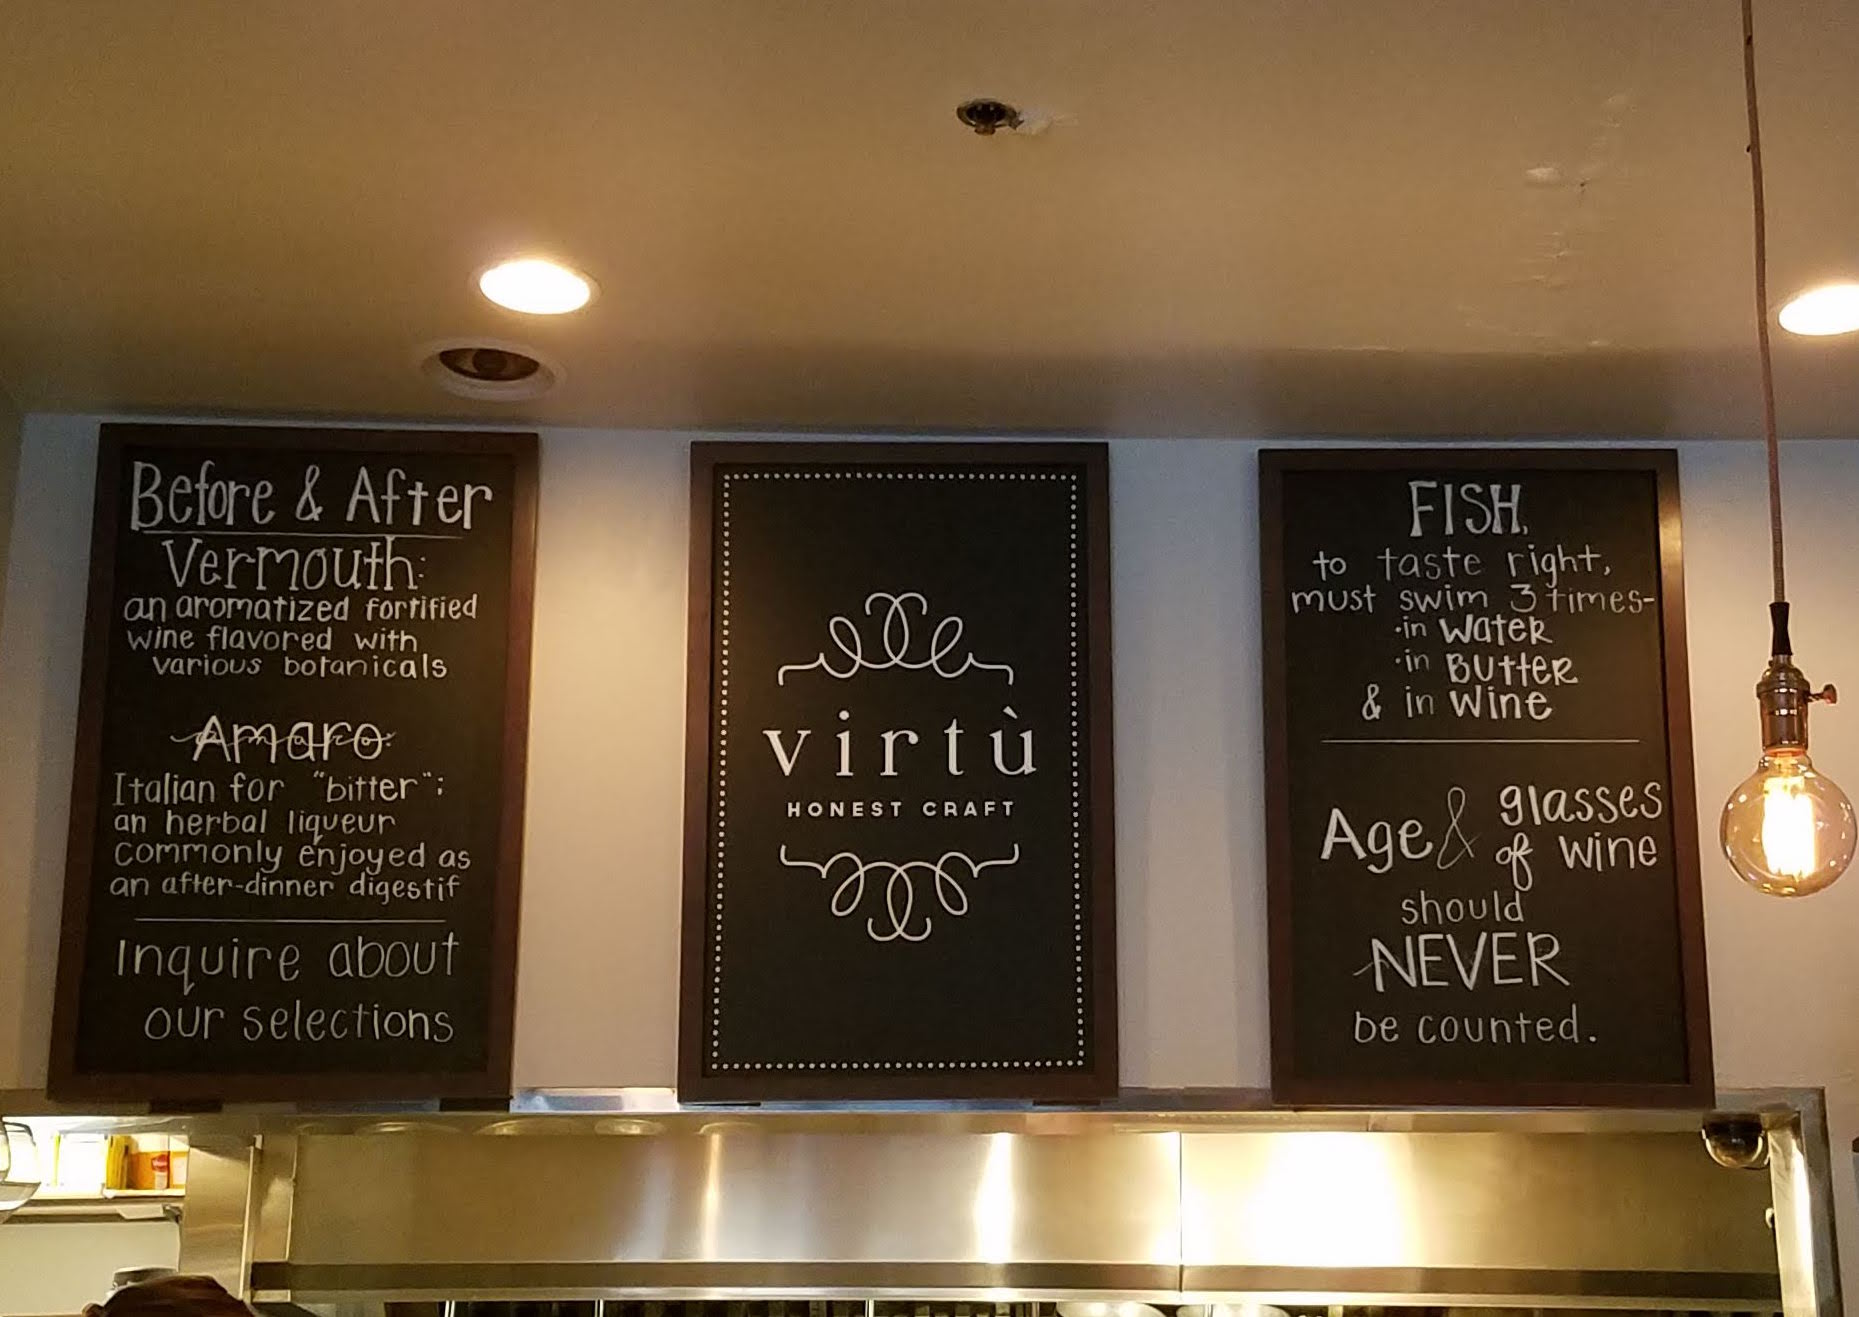 Before & After
Vermouth:
an aromatized fortified
wine flavored with
various botanicals
Amaro:
Italian for "bitter";
an herbal liqueur
commonly enjoyed as
an after-dinner digestif
Inquire about
our selections
virtù
HONEST CRAFT
FISH,
to taste right,
must swim 3 times-
·in WATER
·in BUTTER
& in WINE
Age & glasses
of wine
should
NEVER
be counted.